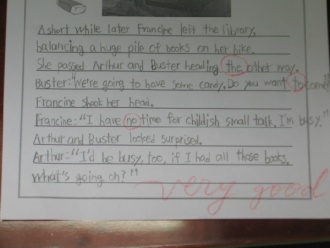 A short while later Francine left the library,
balancing a huge pile of books on her bike.
She passed Arthur and Buster heading the other way.
Buster:"We're going to have some candy. Do you want to come?
Francine shook her head.
Francine:"I have no time for childish small talk. I'm busy."
Arthur and Buster looked surprised.
Arthur:"I'd be busy, too, if I had all those books.
What's going on?"
very good